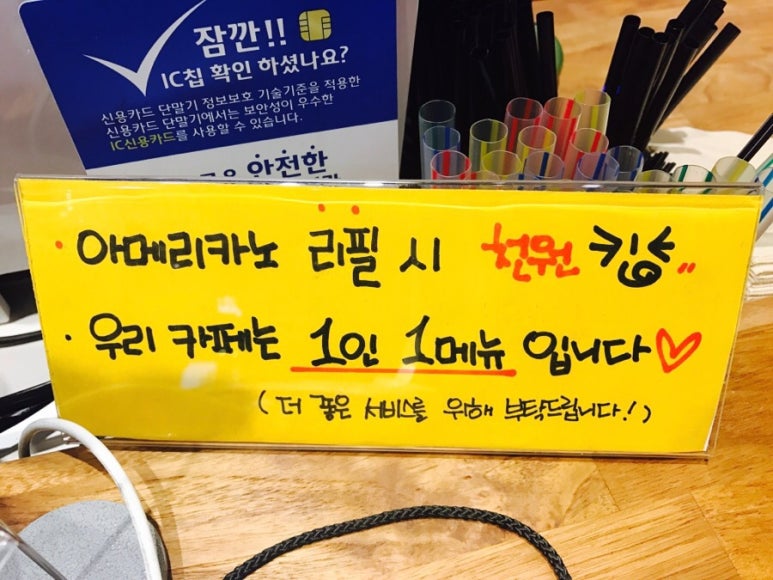 잠깐!!
IC칩 확인 하셨나요?
신용카드 단말기 정보보호 기술기준을 적용한
신용카드 단말기에서는 보안성이 우수한
IC신용카드를 사용할 수 있습니다.
안전한
· 아메리카노 리필 시 천원
· 우리 카페는 1인 1메뉴 입니다♡
(더 좋은 서비스를 위해 부탁드립니다!)